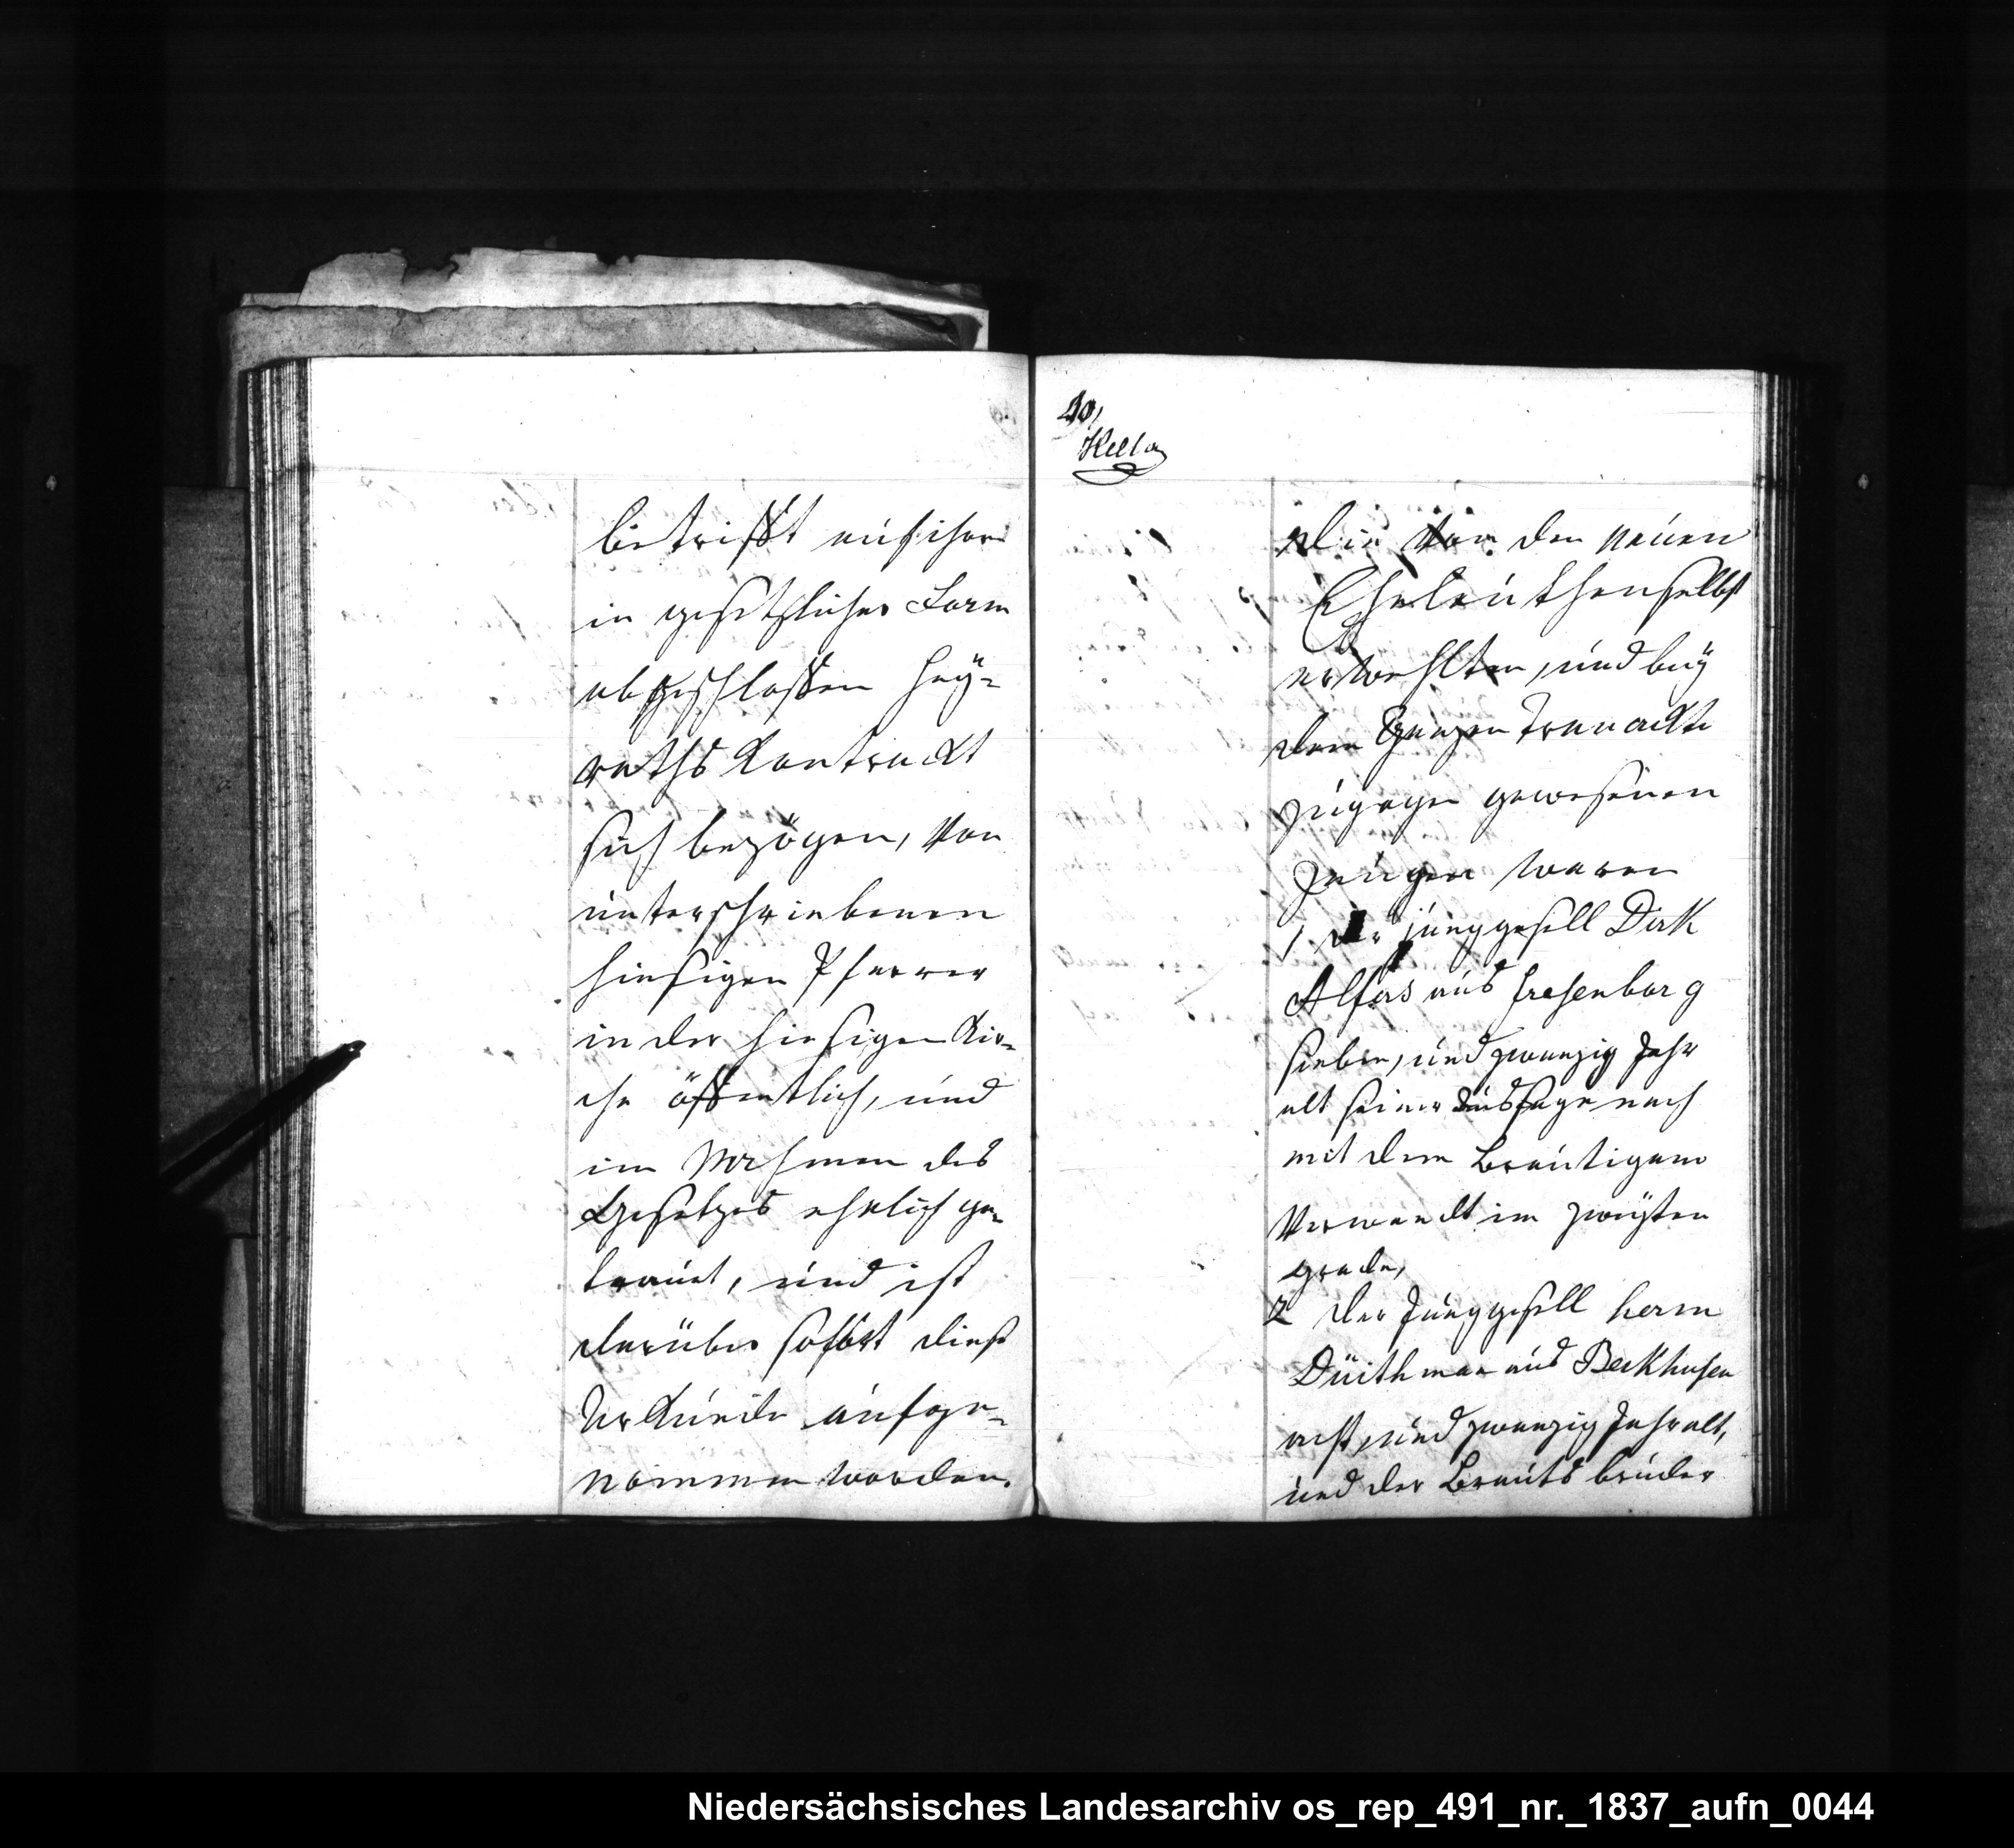 betrifft auf ihren
in gesetzlicher Form
abgeschlossen Hey=
raths Contrackt
sich bezögen, von
unterschriebenen
hiesigen Pfarrer
in der hiesigen Kir=
che öffentlich, und
im Nahmen des
Gesetzes ehelich ge=
traut, und ist
darüber sofort diese
Urkunde aufge=
nommen worden.
40,
die von den neuen
Eheleuthen selbst
erwehlten, und bey
dem ganzen Trauackte
zugegen gewesenen
Zeugen waren
1 der junggesell Dirk
Alfers aus Fresenborg
sieben, und zwanzig Jahr
alt seiner Aussage nach
mit dem Bräutigam
verwandt im zweyten
grade,
2 der Junggesell herm
Düithman aus Beckhusen
acht, und zwanzig Jahr alt,
und der Brauts bruder
Niedersächsisches Landesarchiv os_rep_491_nr._1837_aufn_0044